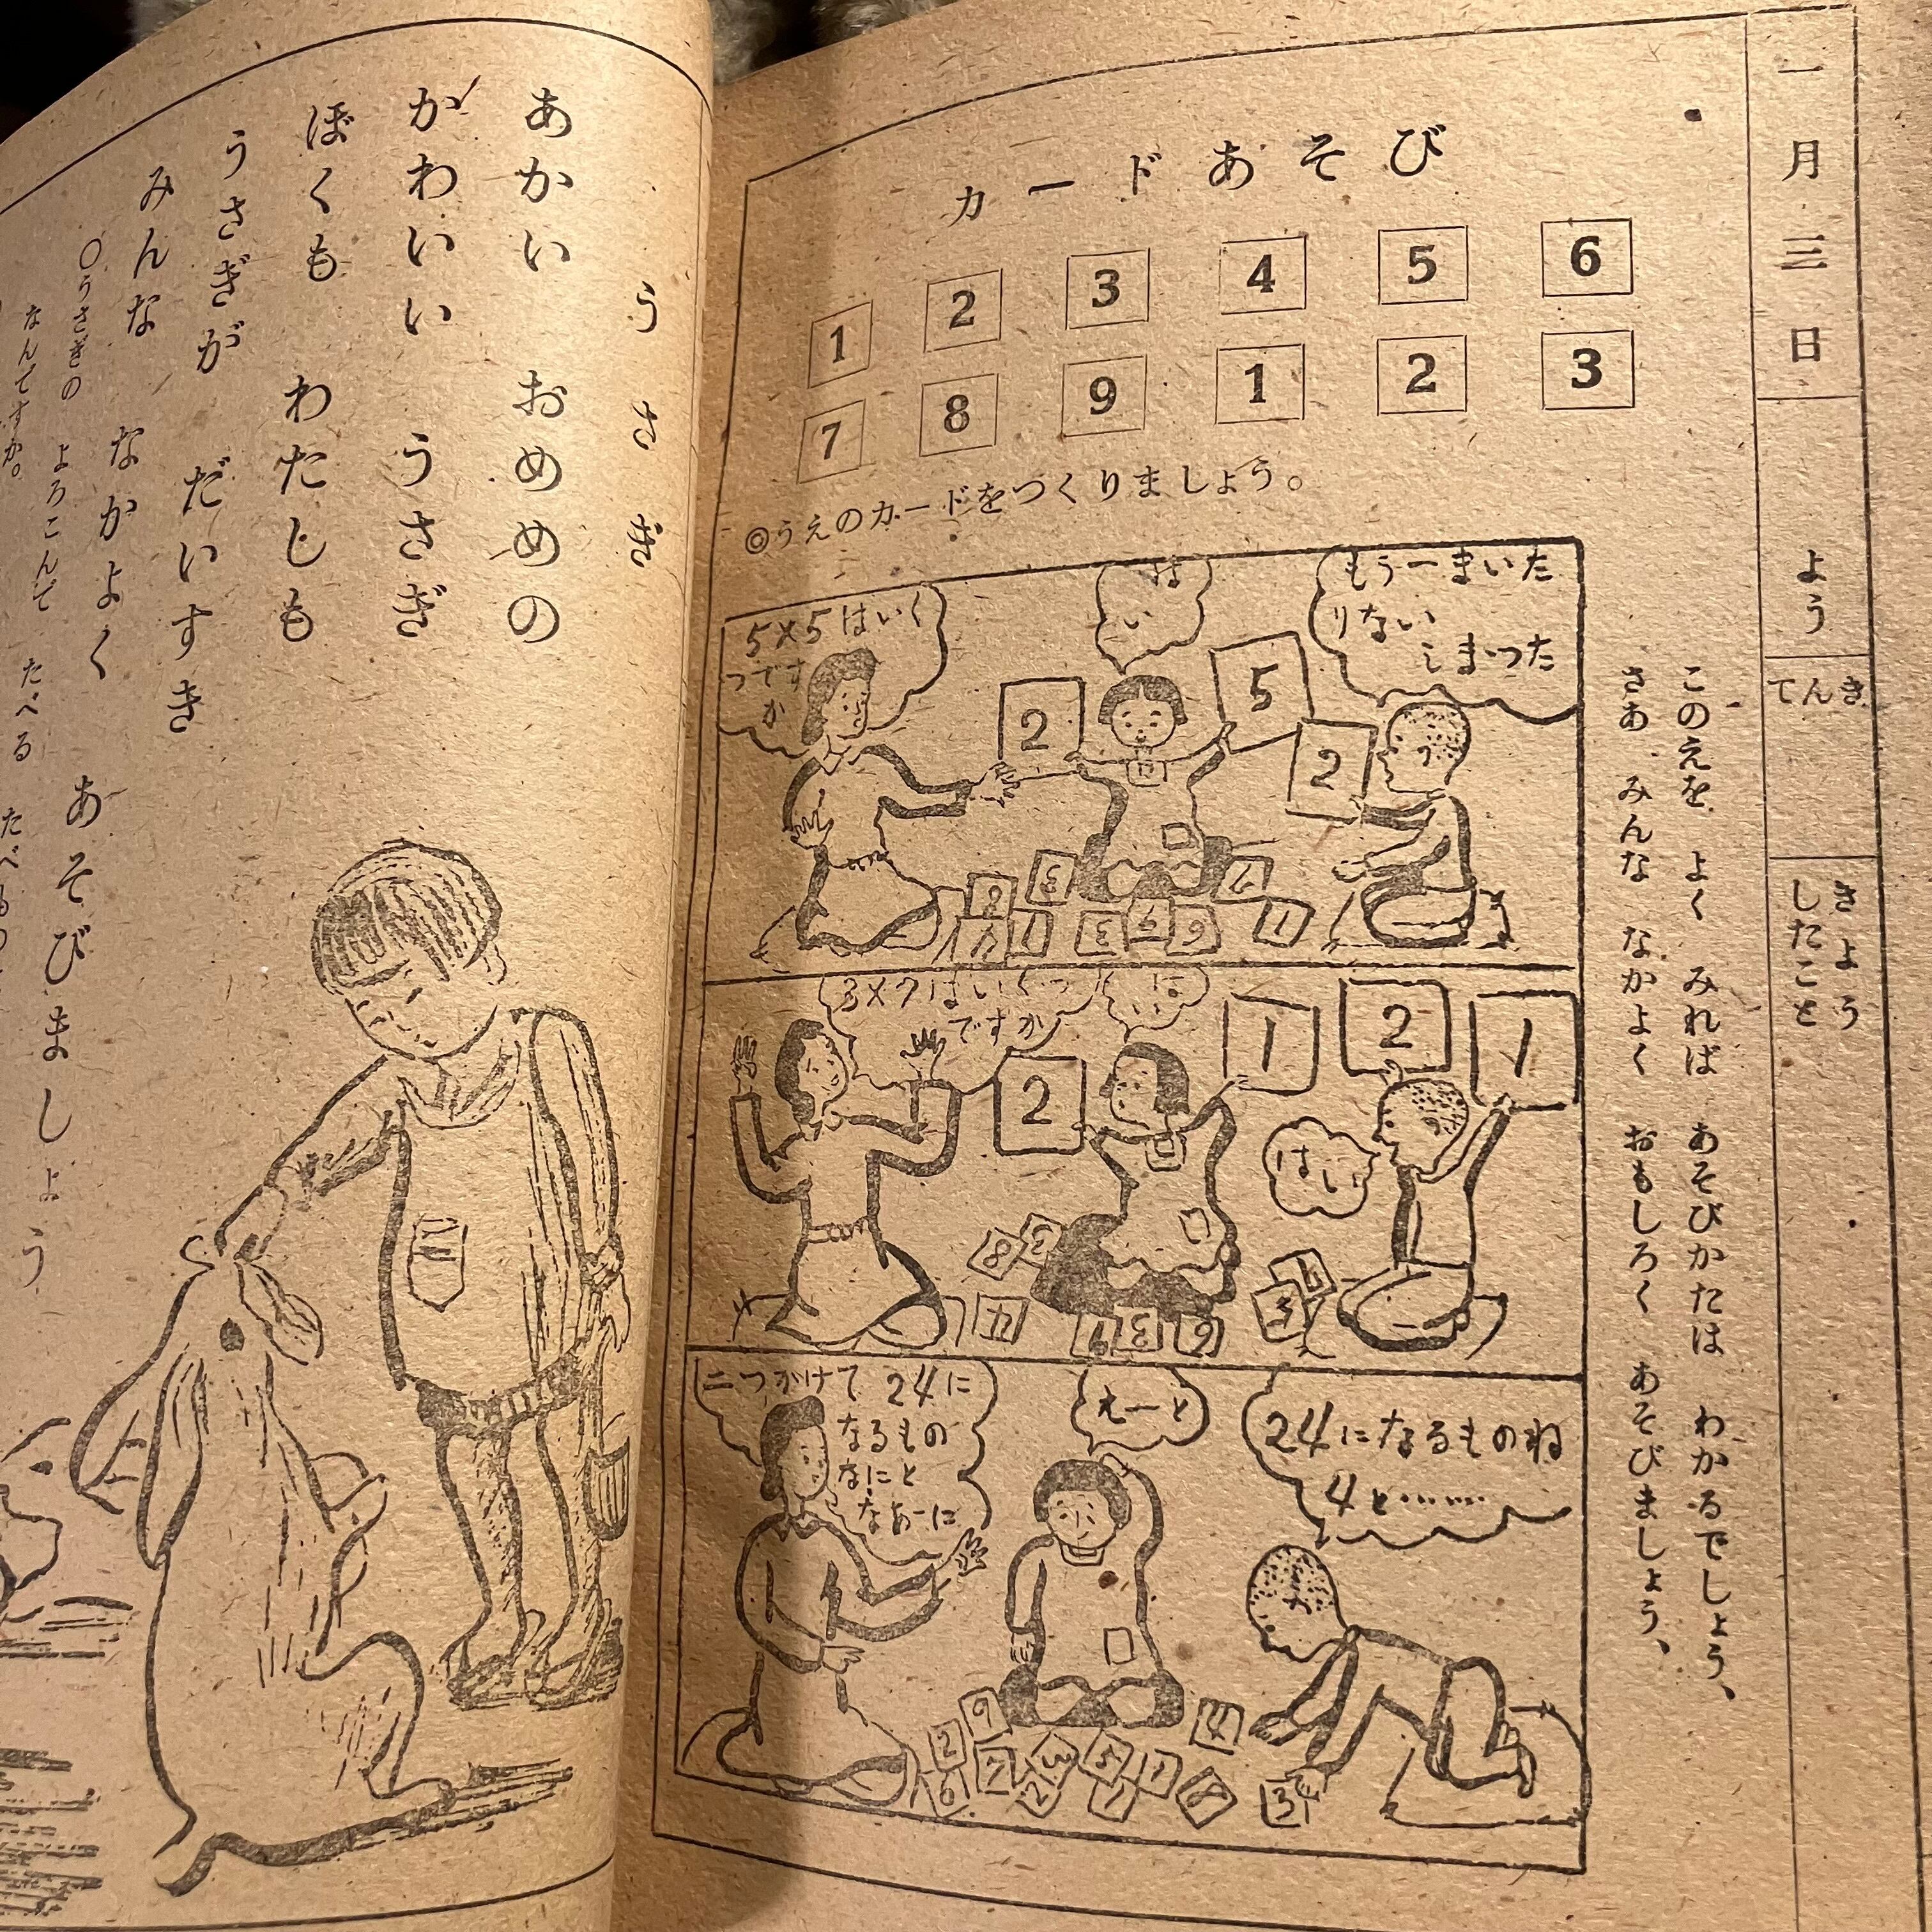 一月三日
よう
てんき
きょう
したこと
このえを よく みれば あそびかたは わかるでしょう、
さあ みんな なかよく おもしろく あそびましょう、
カードあそび
1 2 3 4 5 6
7 8 9 1 2 3
◎うえのカードをつくりましょう。
もう一まいた
りない
しまった
はい
5×5はいく
つです
か
2
5
2
3×7はいくつ
ですか
はい
2
1
2
1
はい
二つかけて 24に
なるもの
なにと
なあーに
えーと
24になるものね
4と……
うさぎ
あかい おめめの
かわいい うさぎ
ぼくも わたしも
うさぎが だいすき
みんな なかよく あそびましょう
○うさぎの よろこんで たべる
なんですか。